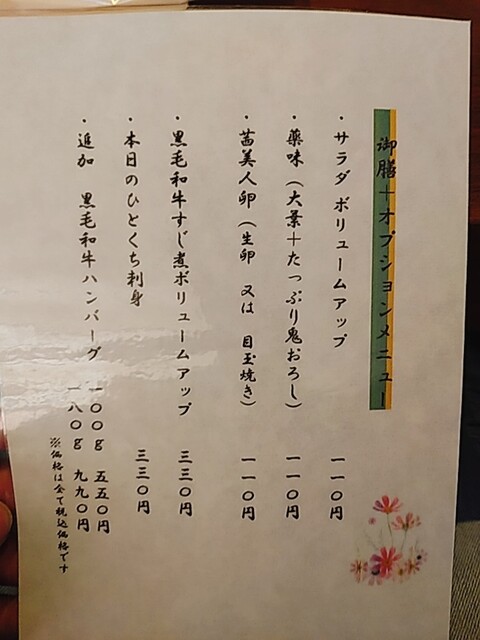 御膳＋オプションメニュー
・サラダ ボリュームアップ 一一〇円
・薬味（大葉＋たっぷり鬼おろし） 一一〇円
・茜美人卵（生卵 又は 目玉焼き） 一一〇円
・黒毛和牛すじ煮ボリュームアップ 三三〇円
・本日のひとくち刺身 三三〇円
・追加 黒毛和牛ハンバーグ 一〇〇g 五五〇円
一八〇g 九九〇円
※価格は全て税込価格です